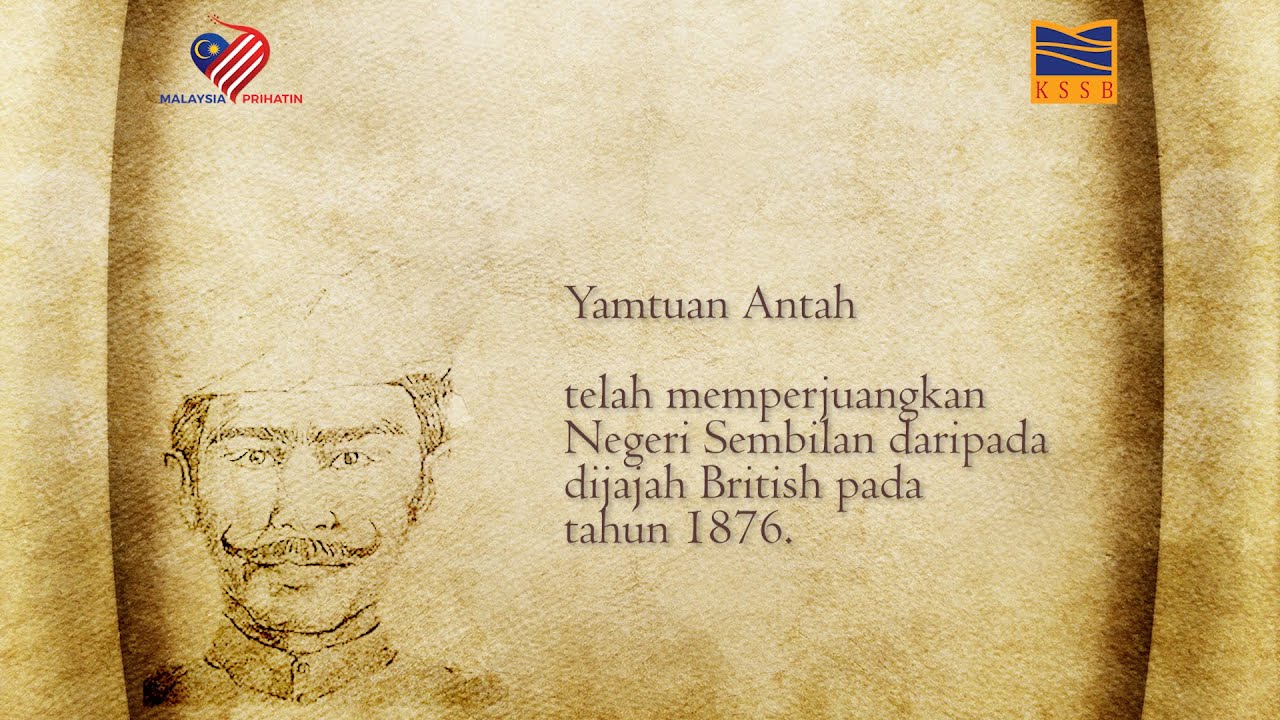 MALAYSIA PRIHATIN
KSSB
Yamtuan Antah
telah memperjuangkan
Negeri Sembilan daripada
dijajah British pada
tahun 1876.